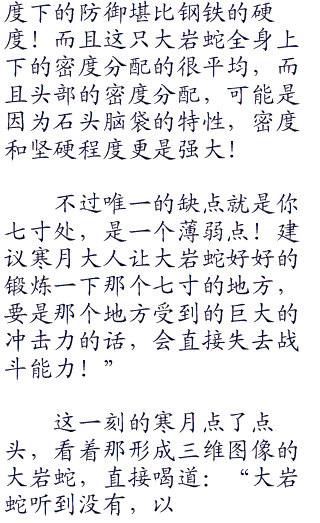 度下的防御堪比钢铁的硬
度！而且这只大岩蛇全身上
下的密度分配的很平均，而
且头部的密度分配，可能是
因为石头脑袋的特性，密度
和坚硬程度更是强大！
不过唯一的缺点就是你
七寸处，是一个薄弱点！建
议寒月大人让大岩蛇好好的
锻炼一下那个七寸的地方，
要是那个地方受到的巨大的
冲击力的话，会直接失去战
斗能力！”
这一刻的寒月点了点
头，看着那形成三维图像的
大岩蛇，直接喝道：“大岩
蛇听到没有，以